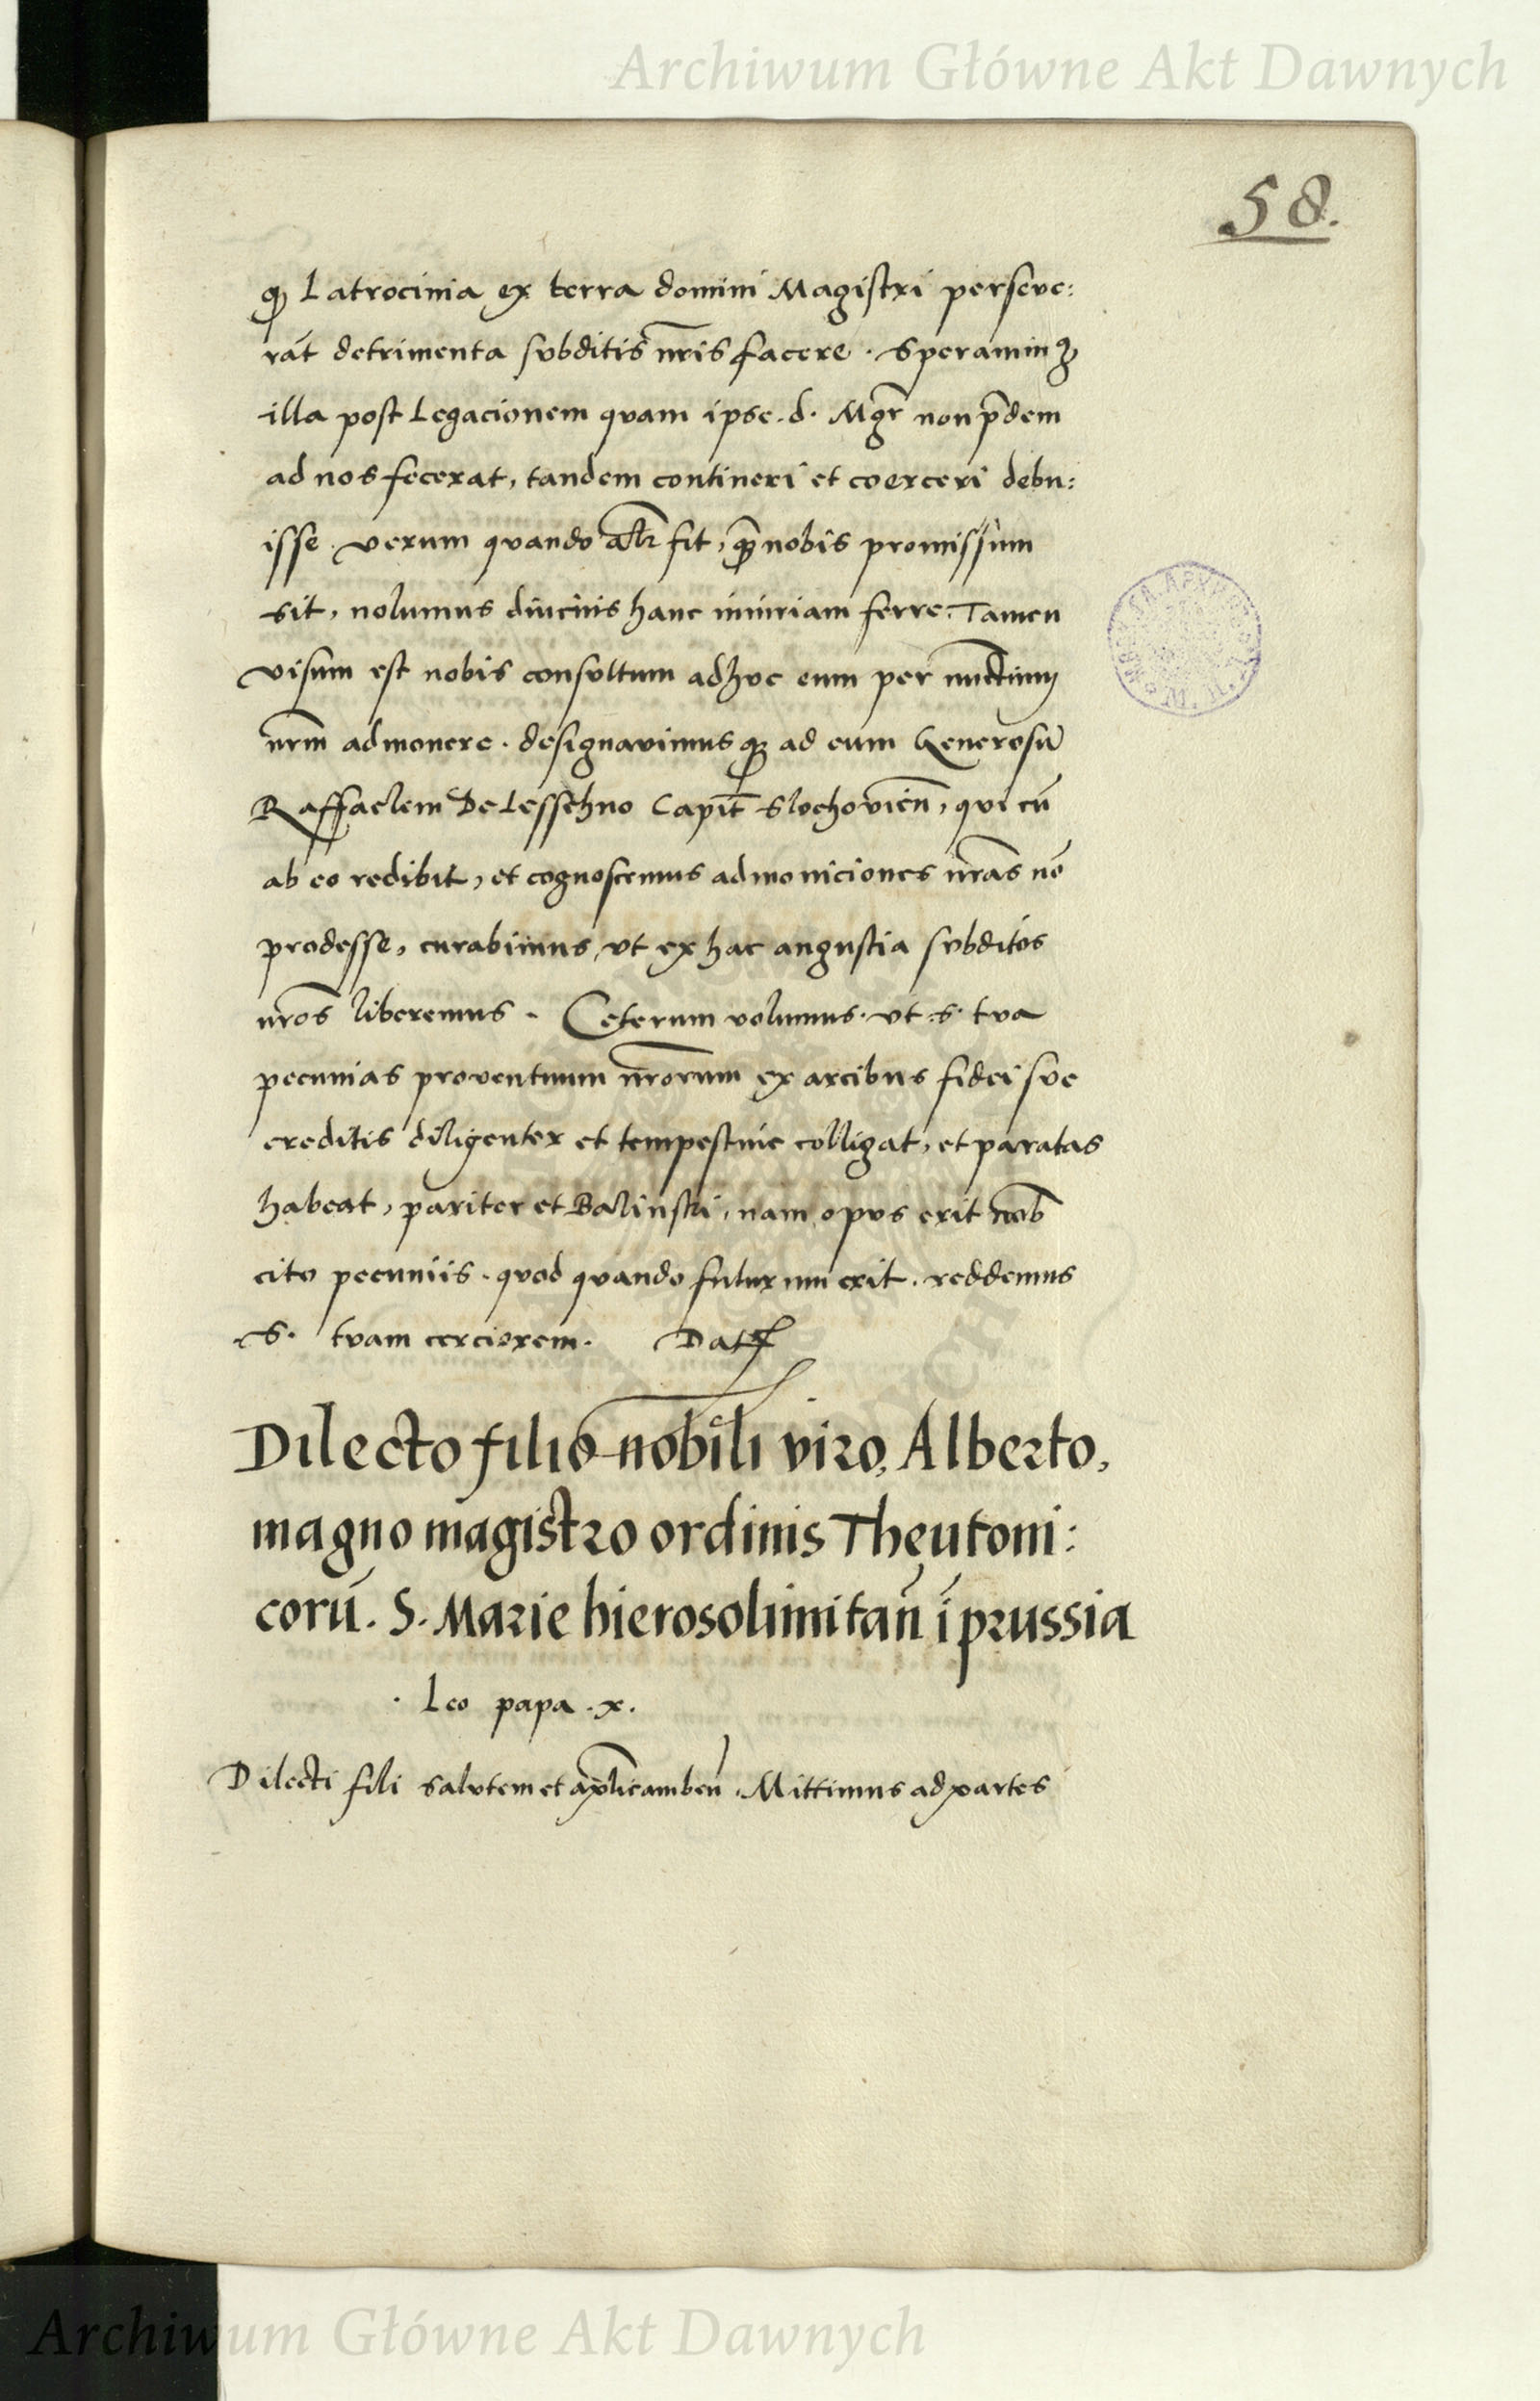 Archiwum Główne Akt Dawnych
58.
ꝙ Latrocinia ex terra domini Magistri perseve:
rāt detrimenta subditis nr̄is facere . Speramimꝫ
illa post Legacionem quam ipse .d. Mgr̄ non pr̄dem
ad nos fecerat, tandem contineri et coerceri debu:
isse . verum quando alr̄ fit, ꝙ̄ nobis promissum
sit, nolumus diucius hanc iniuriam ferre. Tamen
visum est nobis consultum adhuc eum per nunctium
nrm̄ admonere . designavimusqꝫ ad eum Generosū
Raffaelem De Lesschno Capit̄ Slochovien̄, qui cū
ab eo redibit, et cognoscemus admoniciones nr̄as nō
prodesse, curabimus, ut ex hac angustia subditos
nr̄os liberemus . Ceterum volumus . ut .s. tua
pecunias proventuum nr̄orum ex arcibus fidei sue
creditis diligenter et tempestive colligat, et paratas
habeat, pariter et Balinski, nam opus erit nob̄
cito pecuniis . quod quando futurum erit . reddemus
.S. tuam cerciorem . Datꝭ
Dilecto filio nobili viro, Alberto,
magno magistro ordinis Theutoni:
corū . S. Marie hierosolimitan̄ ī prussia
. Leo papa .x.
Dilecti fili salutem et ap̄licam ben̄ . Mittimus ad partes
Archiwum Główne Akt Dawnych